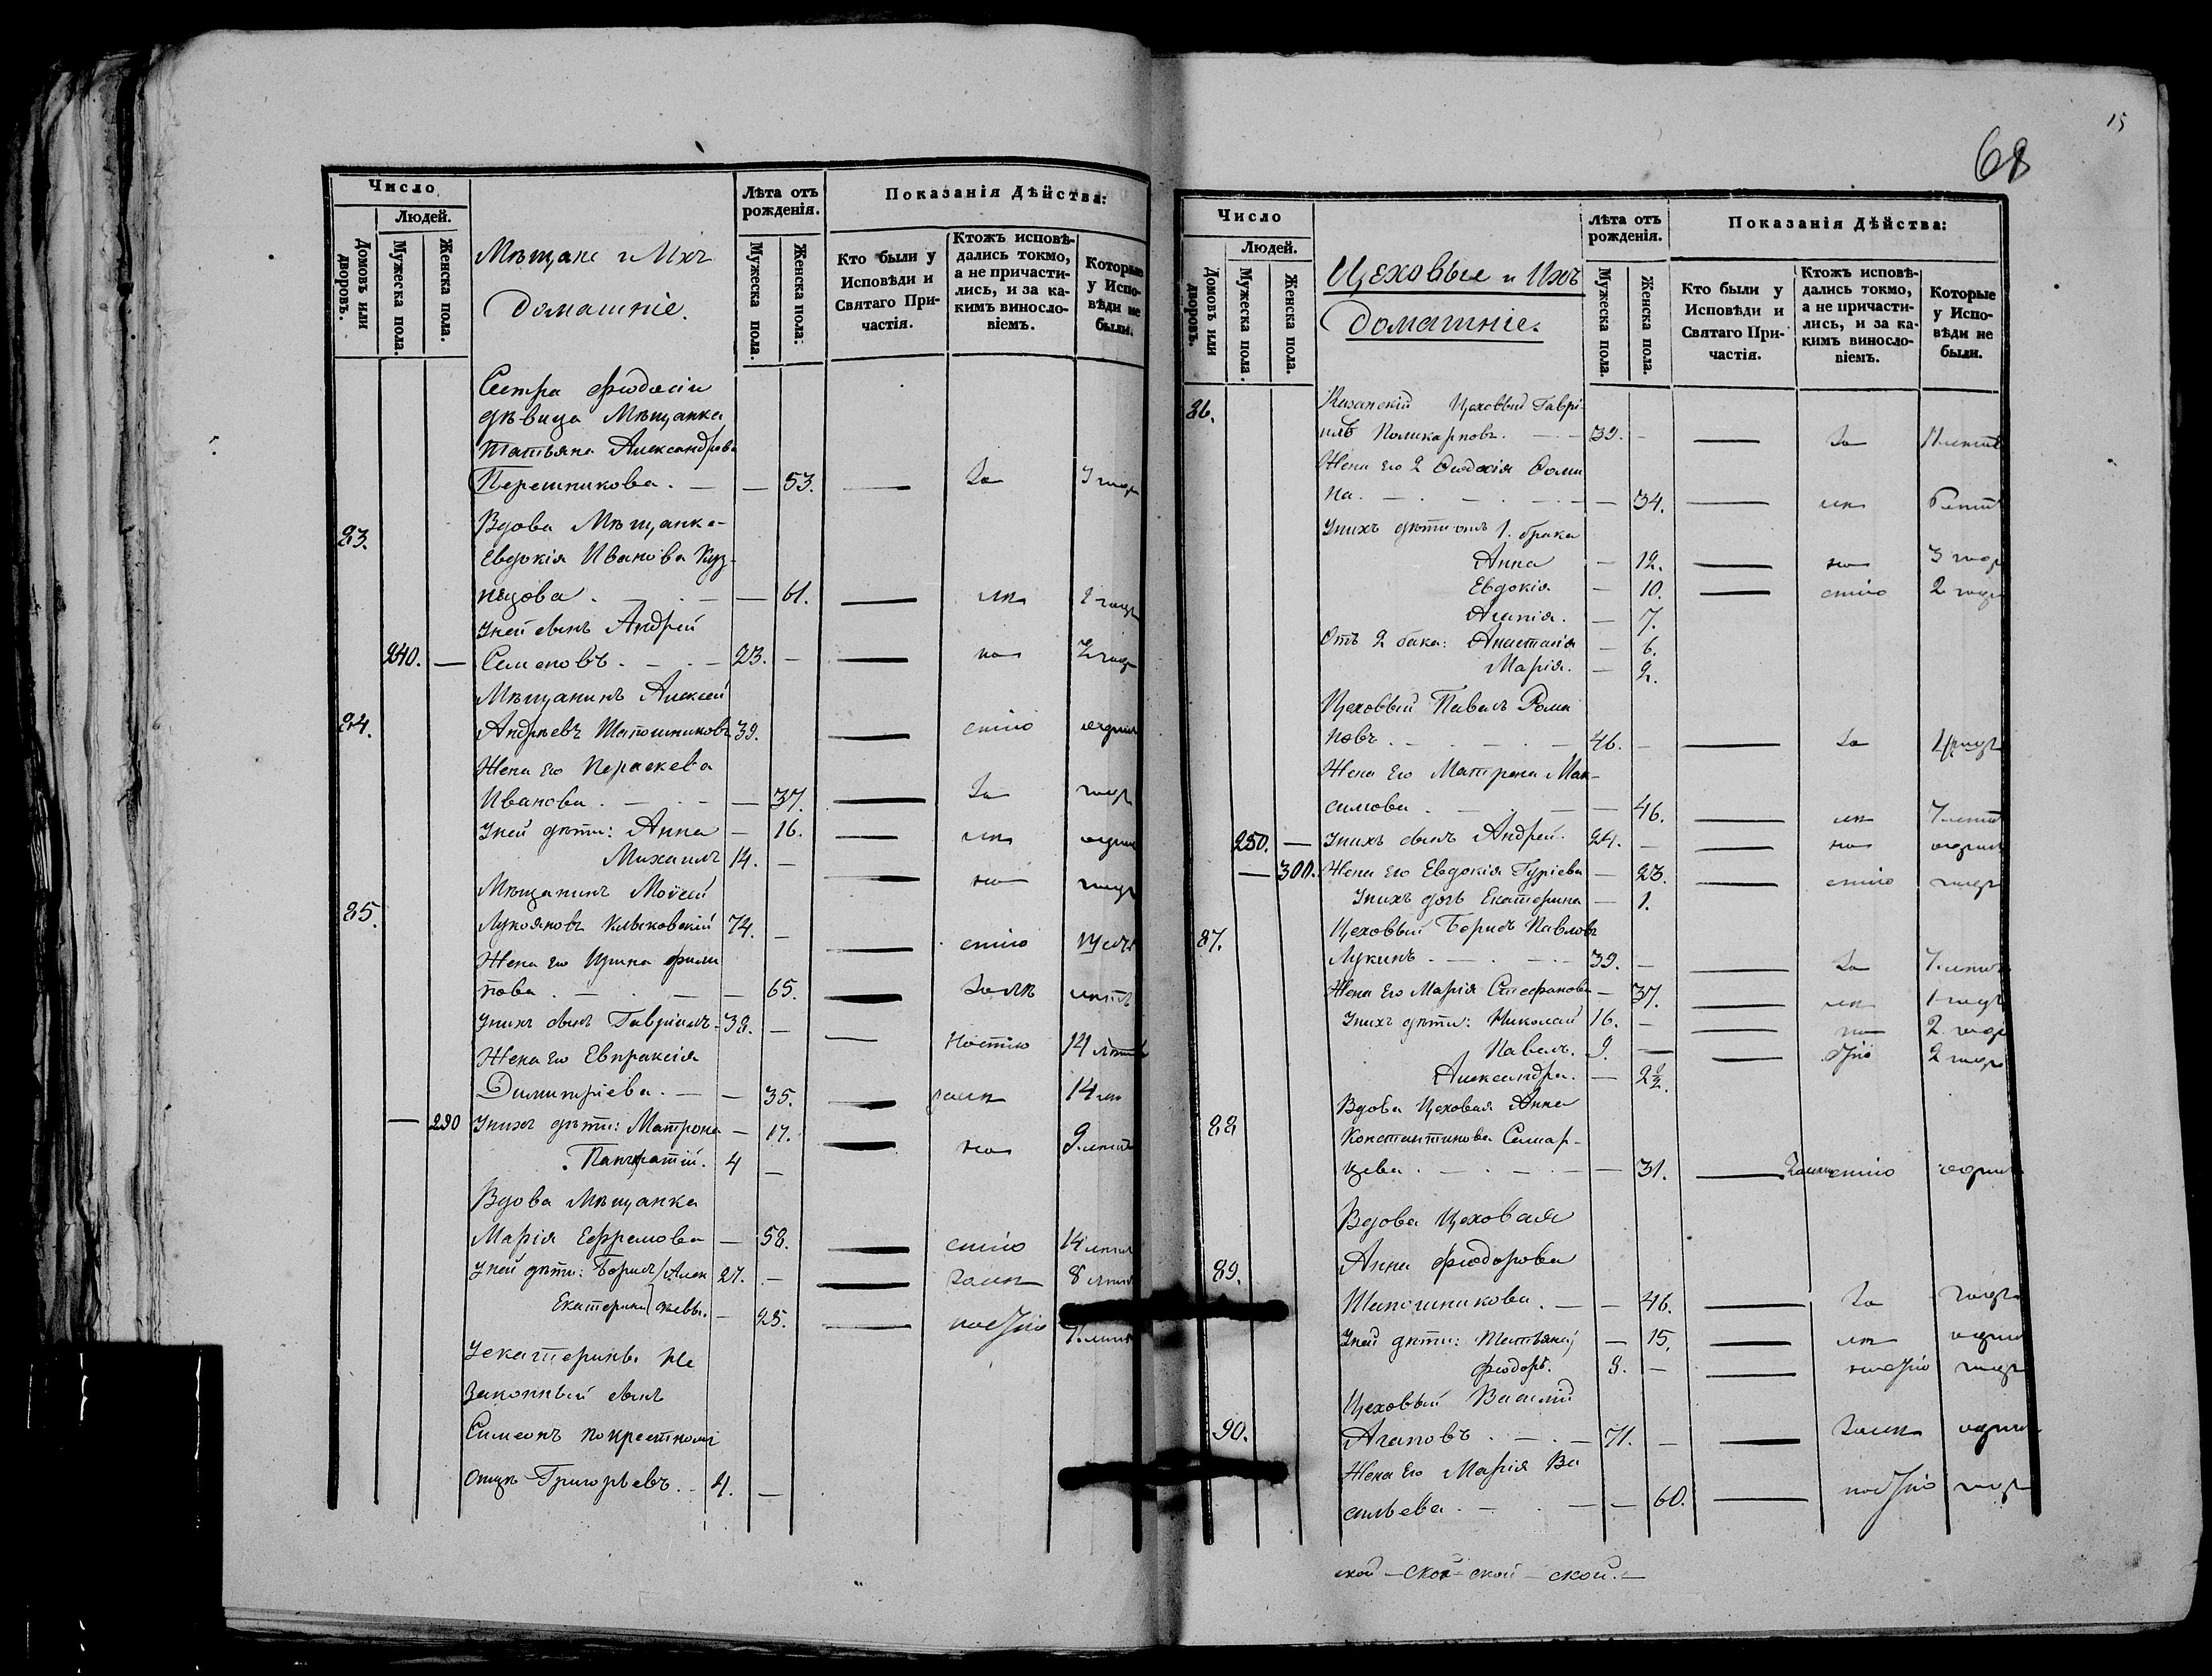 15
68
Число
Людей.
Домовъ или дворовъ.
Мужеска пола.
Женска пола.
Мѣщане и Ихъ
домашніе.
Лѣта отъ рожденія.
Мужеска пола.
Женска пола.
Показанія Дѣйства:
Кто были у Исповѣди и Святаго Причастія.
Ктожъ исповѣдались токмо, а не причастились, и за какимъ винословіемъ.
Которые у Исповѣди не были.
Сестра Феодосіи
дѣвица Мѣщанка
Татьяна Александрова
— 53. — За
83. Вдова Мѣщанка
Евдокія Иванова Куз-
нецова . — — 61. — лѣ 2 года
У ней сынъ Андрей
240. — Семеновъ. — 23. — — но
Мѣщанинъ Алексей
84. Андреевъ Шапошниковъ 39. — стію
Жена его Параскева
Иванова . — — 37. — За годъ
У ней дѣти: Анна — 16. — лѣ
Михаилъ 14. — — но годъ
Мѣщанинъ Моѵсей
85. Лукояновъ 74. — — стію
Жена его Ирина Фили
пова . — — 65. — За лѣ лѣтъ
У нихъ сынъ Гавріилъ 38. — — ностію 14 лѣтъ
Жена его Евпраксія
Димитріева. — — 35. — 14
— 290 У нихъ дѣти: Матрона — 17. — но 9 лѣтъ
Панкратій. 4 —
Вдова Мѣщанка
Марія Ефремова — 58. — стію 14 лѣтъ
У ней дѣти: Борисъ 27. — — За лѣ 8 лѣтъ
Екатерина — 25. —
У Екатерины не
законный сынъ
Симеонъ по крестному
отцу Григорьевъ. — 4. —
Число
Людей.
Домовъ или дворовъ.
Мужеска пола.
Женска пола.
Цеховые и Ихъ
домашніе.
Лѣта отъ рожденія.
Мужеска пола.
Женска пола.
Показанія Дѣйства:
Кто были у Исповѣди и Святаго Причастія.
Ктожъ исповѣдались токмо, а не причастились, и за какимъ винословіемъ.
Которые у Исповѣди не были.
86. Казанскій Цеховый Гаврі-
илъ Поликарповъ. — 39. — — За
Жена его 2 Феодосія Фоми
на. — — 34. — лѣ
У нихъ дѣти отъ 1. брака
Анна — 12. — но 3 года
Евдокія — 10. — стію 2 года
Агапія. — 7.
Отъ 2 бака: Анастасія — 6.
Марія. — 2.
Цеховый Павелъ Рома
новъ. — 46. — — За
Жена его Матрона Мак-
симова . — — 46. — лѣ 7 лѣтъ
250. — У нихъ сынъ Андрей. 24. — — но
— 300. Жена его Евдокія Гуріева — 23. — стію годъ
У нихъ дочь Екатерина — 1.
87. Цеховый Борисъ Павловъ
Лукинъ. — 39. — — За 7 лѣтъ
Жена его Марія Стефанова — 37. — лѣ 1 годъ
У нихъ дѣти: Николай 16. — — но 2 года
Павелъ. 9. — — 2 года
Александра. — 2½.
88 Вдова Цеховая Анна
Константинова Самар-
цева. — — 31. —
Вдова Цеховая
89. Анна Феодорова
Шапошникова. — — 46. — За годъ
У ней дѣти: Татьяна — 15. — лѣ
Феодоръ. 8. — — годъ
Цеховый Василій
90. Агаповъ . — 71. — — За лѣ
Жена его Марія Ва
сильева . — — 60. — годъ
ской — ской — ской — ской. —